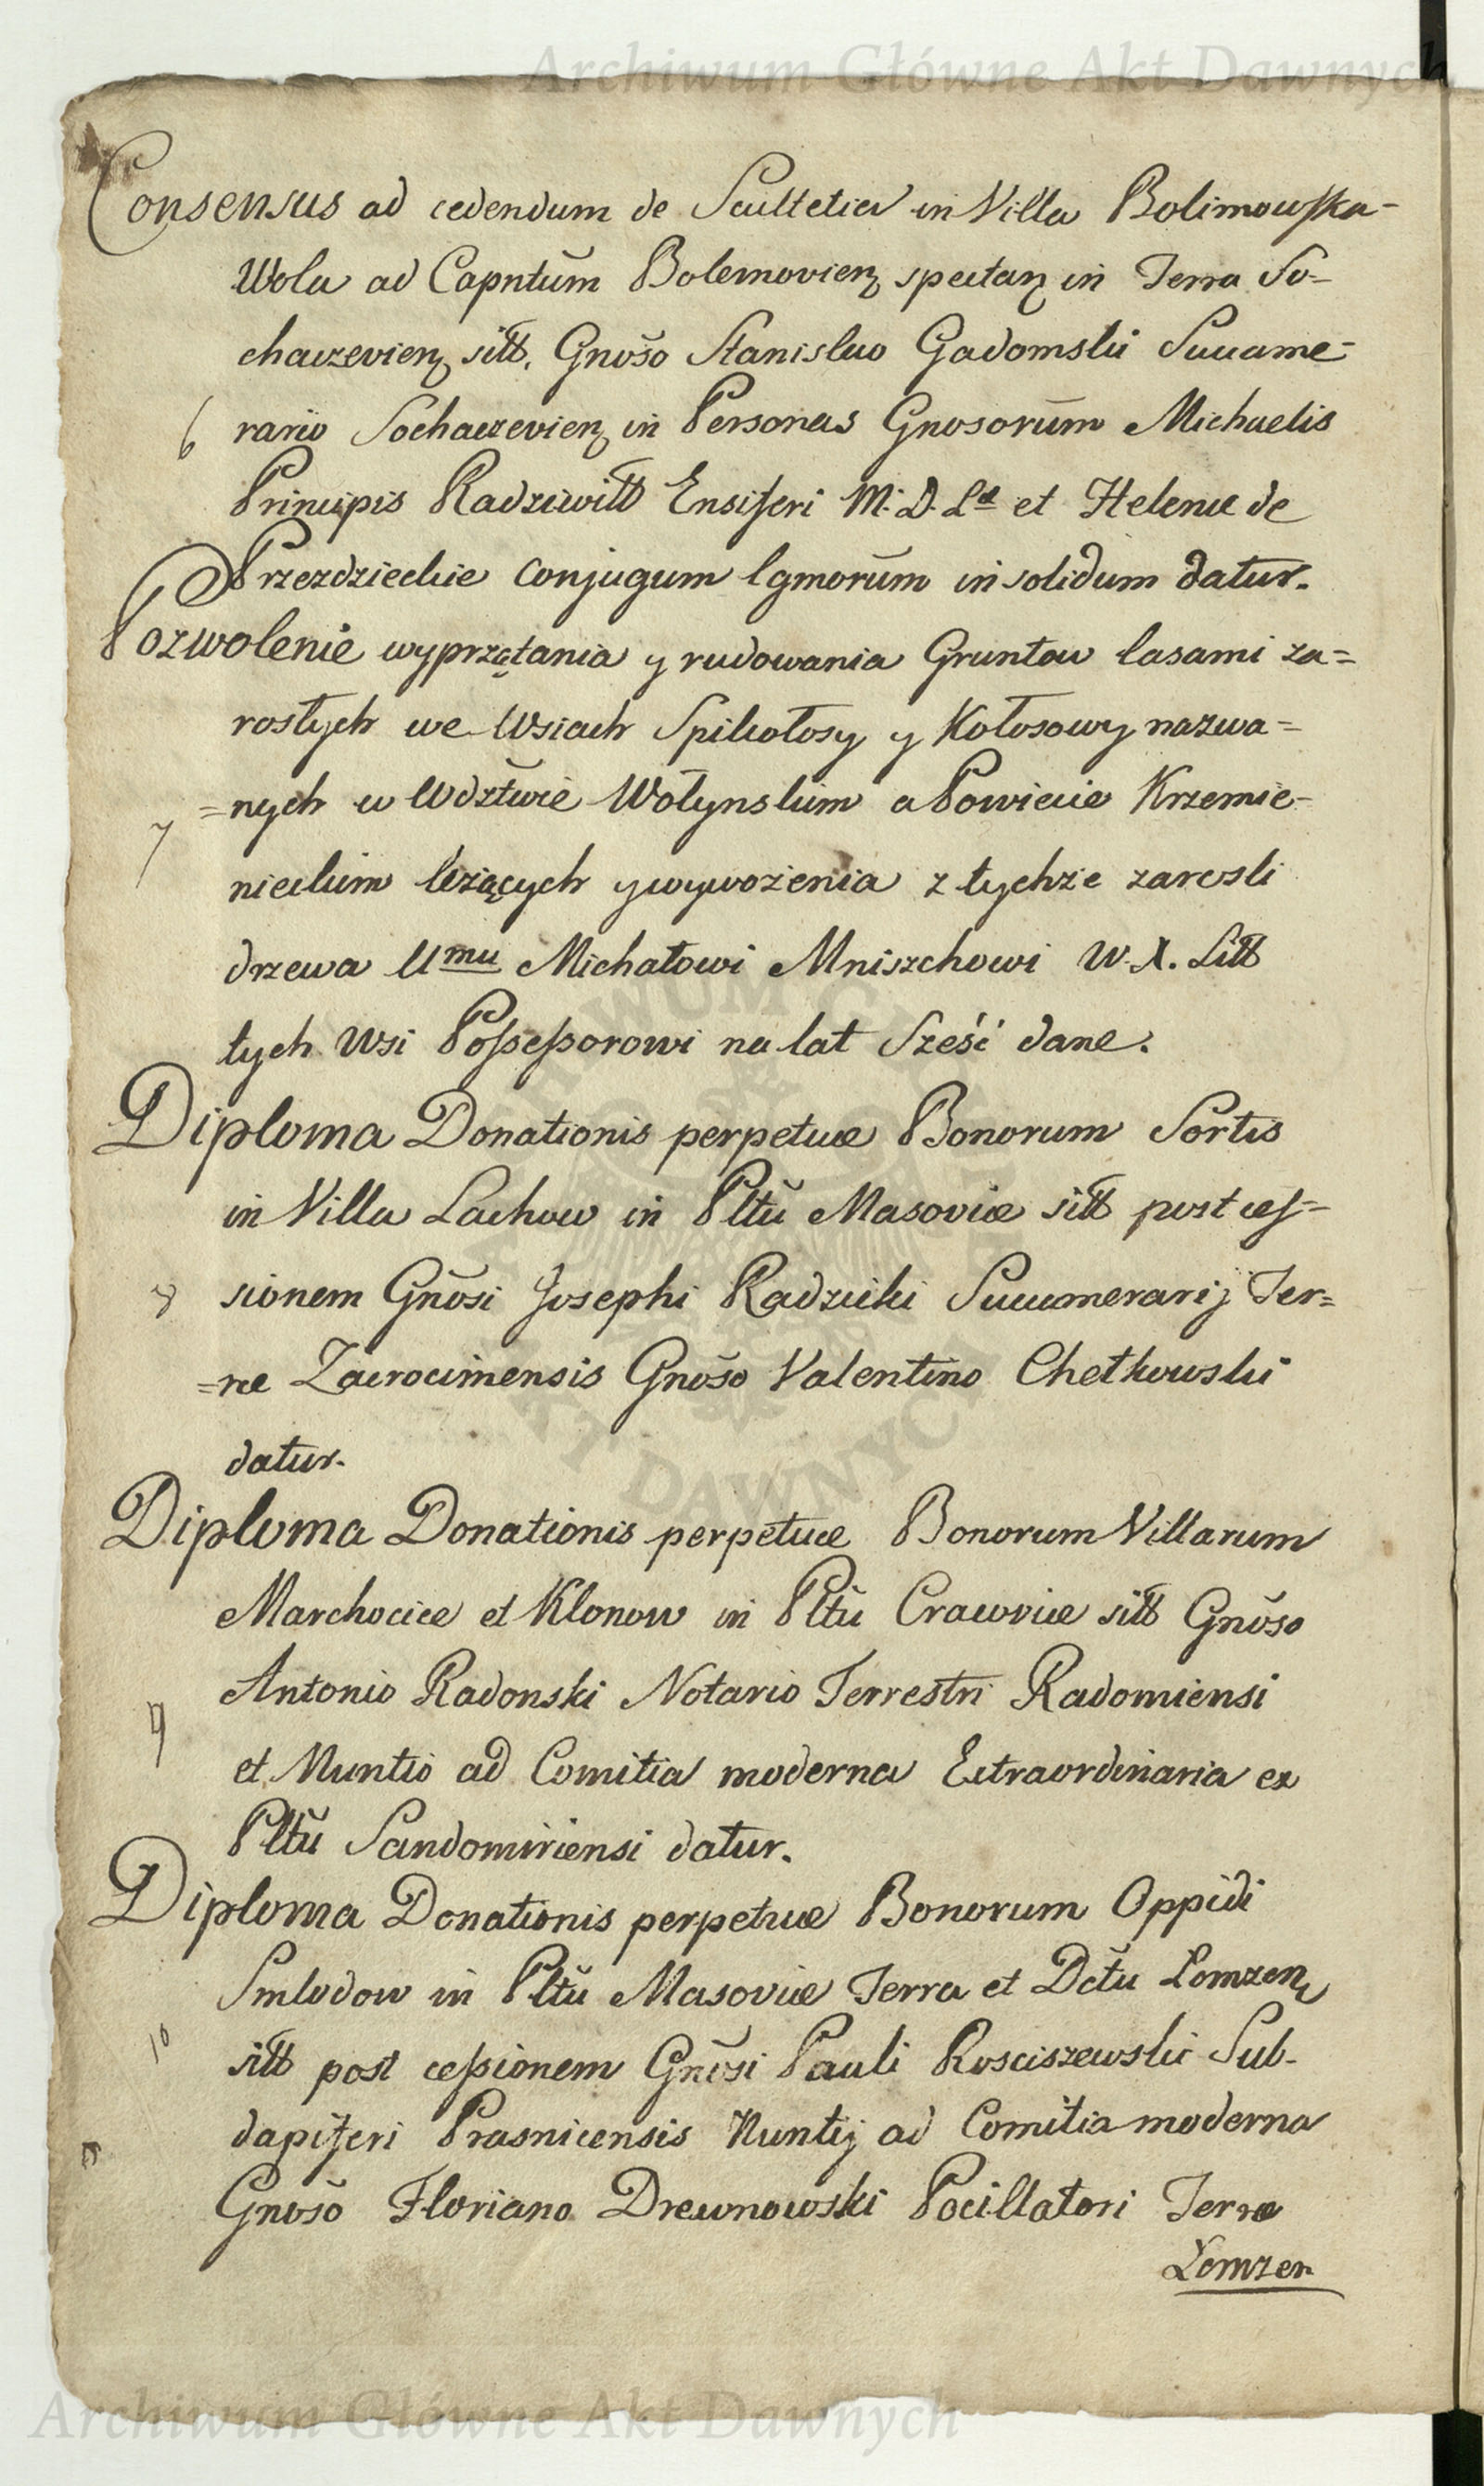 Archiwum Główne Akt Dawnych
Consensus ad cedendum de Scultetia in Villa Bolimowska-
Wola ad Capntūm Bolemovienȝ spectanȝ in Terra So-
chaczevienȝ sitt. Gnōso Stanislao Gadomski Succame-
6 rario Sochaczevienȝ in Personas Gnosorūm Michaelis
Principis Radziwiłł Ensiferi M. D. Læ et Helenæ de
Przezdzieckie Conjugum lgmorūm in solidum datur.
Pozwolenie wyprzątania y rudowania Gruntow lasami za=
rosłych we Wsiach Spikołosy y Kołosowy nazwa=
7 =nych w Wdztwie Wołynskim a Powiecie Krzemie-
nieckim leżących y wywożenia z tychże zarosli
drzewa Umu Michałowi Mniszchowi W. X. Litt
tych Wsi Possessorowi na lat Sześć dane.
Diploma Donationis perpetuæ Bonorum Sortis
in Villa Lachow in Pltū Masoviæ sitt post ces-
8 sionem Gnōsi Josephi Radzicki Succamerarij Ter=
=ræ Zacrocimensis Gnōso Valentino Chetkowski
datur.
Diploma Donationis perpetuæ Bonorum Villarum
Marchocice et Klonow in Pltū Cracoviæ sitt Gnōso
9 Antonio Radonski Notario Terrestri Radomiensi
et Nuntio ad Comitia moderna Extraordinaria ex
Pltū Sandomiriensi datur.
Diploma Donationis perpetuæ Bonorum Oppidi
Smlodow in Pltū Masoviæ Terra et Dctū Lomzenȝ
10 sitt post cessionem Gnōsi Pauli Rosciszewski Sub-
dapiferi Prasnicensis Nuntij ad Comitia moderna
Gnōso Floriano Drewnowski Pocillatori Terræ
Lomzen
ARCHIWUM GŁÓWNE AKT DAWNYCH
Archiwum Główne Akt Dawnych